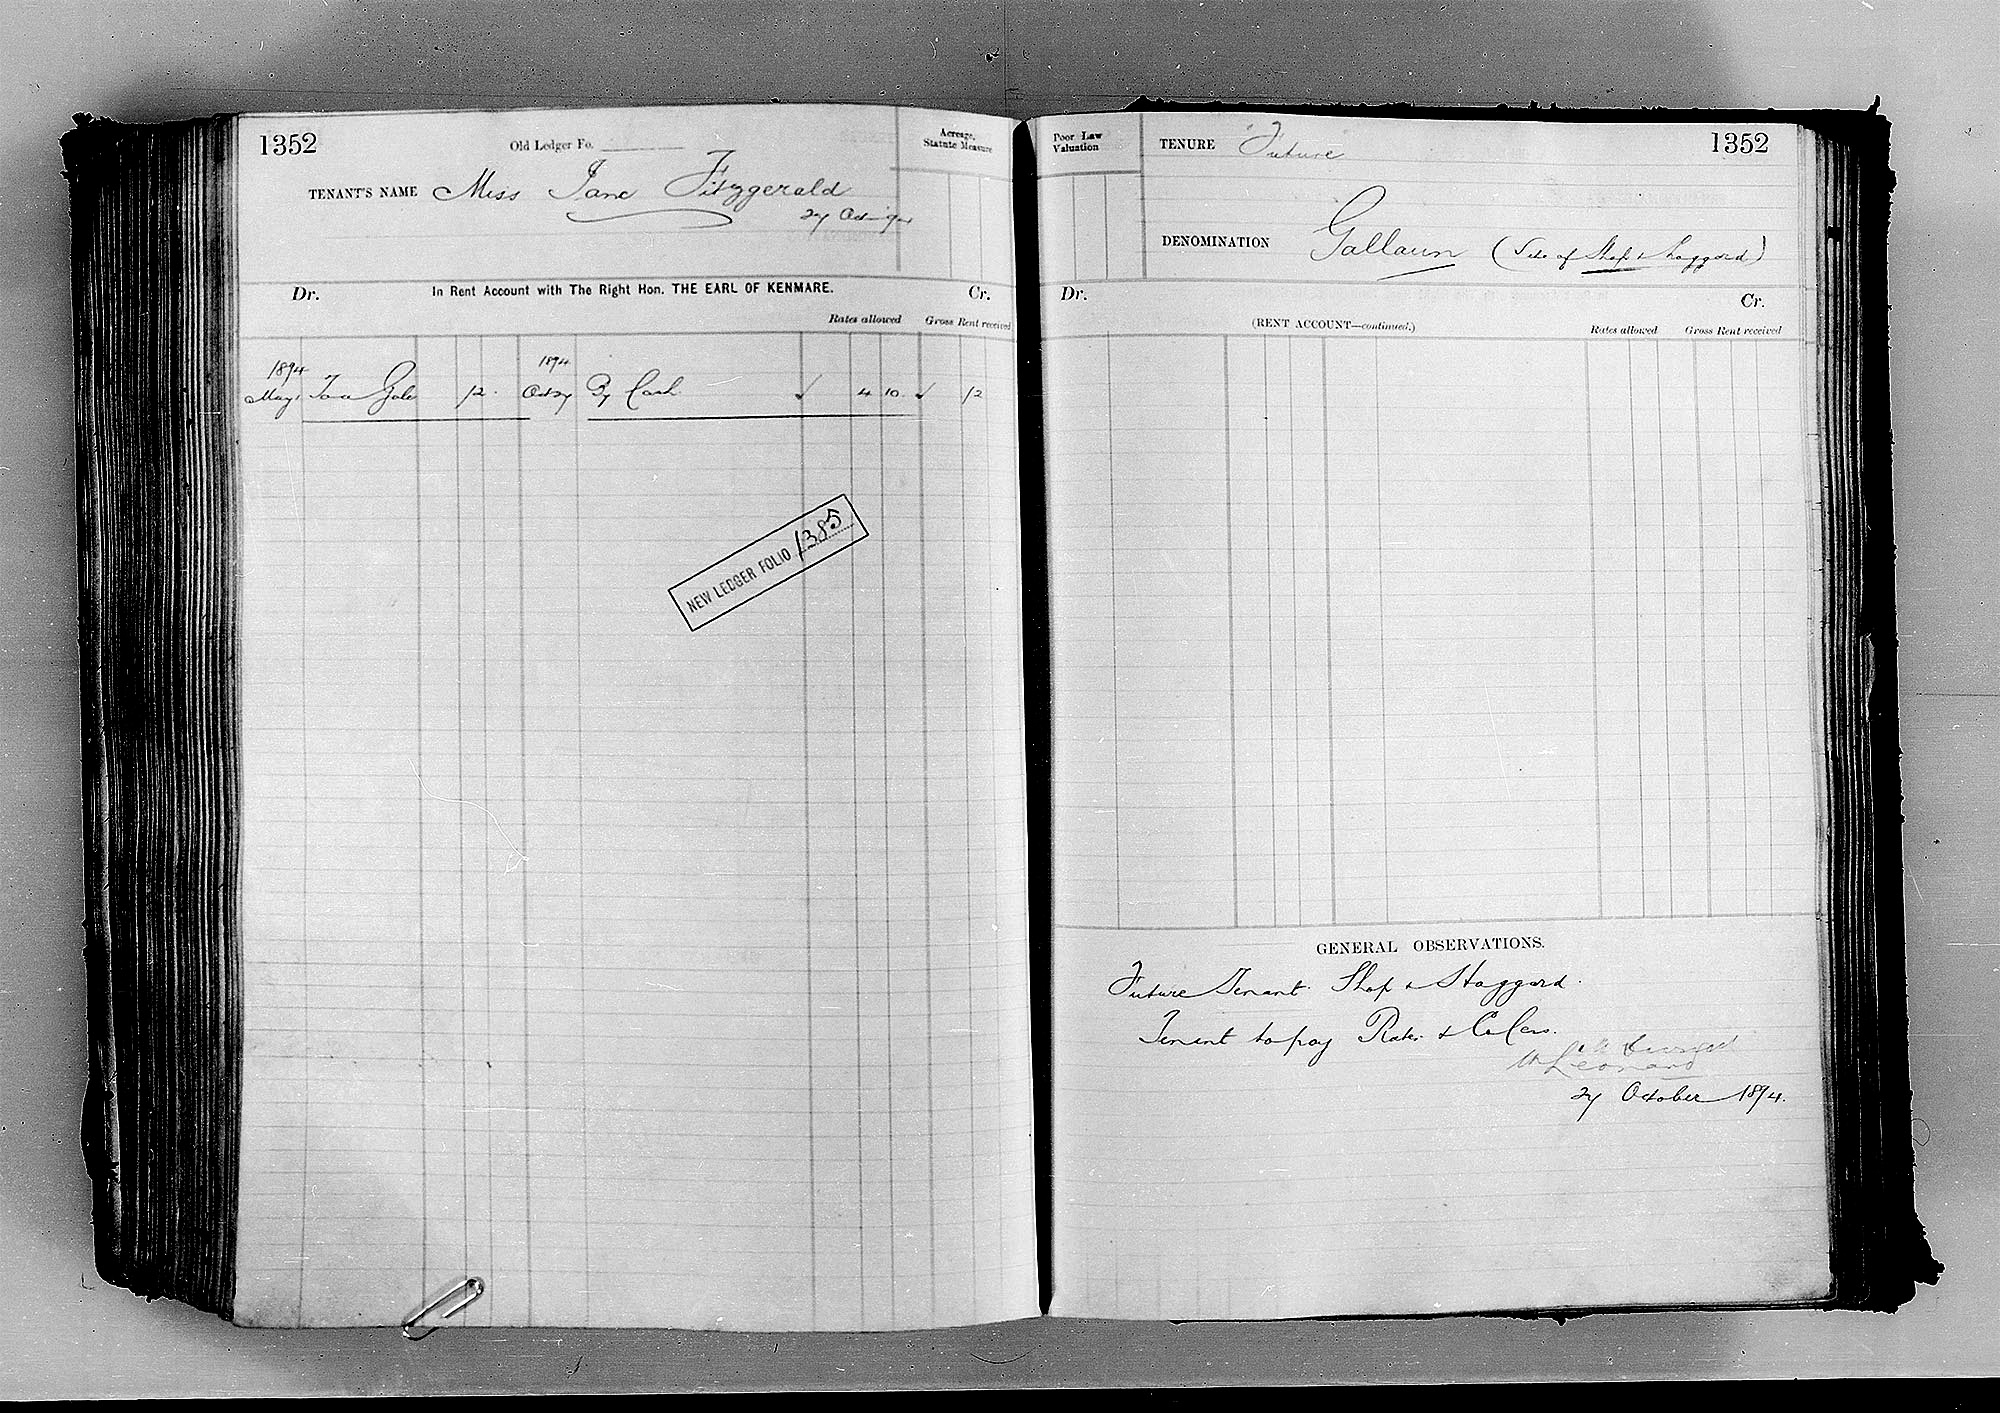 1352
Old Ledger Fo.
Acreage,
Statute Measure
TENANT'S NAME Miss Jane Fitzgerald
27 Oct 94
Dr. In Rent Account with The Right Hon. THE EARL OF KENMARE. Cr.
Rates allowed Gross Rent received
1894 1894
May 1 To a Gale 12. Oct 27 By Cash 4 10. 12
NEW LEDGER FOLIO 1385
Poor Law
Valuation
TENURE Future 1352
DENOMINATION Gallaun (Site of Shop & haggard)
Dr. Cr.
(RENT ACCOUNT—continued.) Rates allowed Gross Rent received
GENERAL OBSERVATIONS.
Future Tenant. Shop & Haggard.
Tenant to pay Rates &
Leonard
27 October 1894.